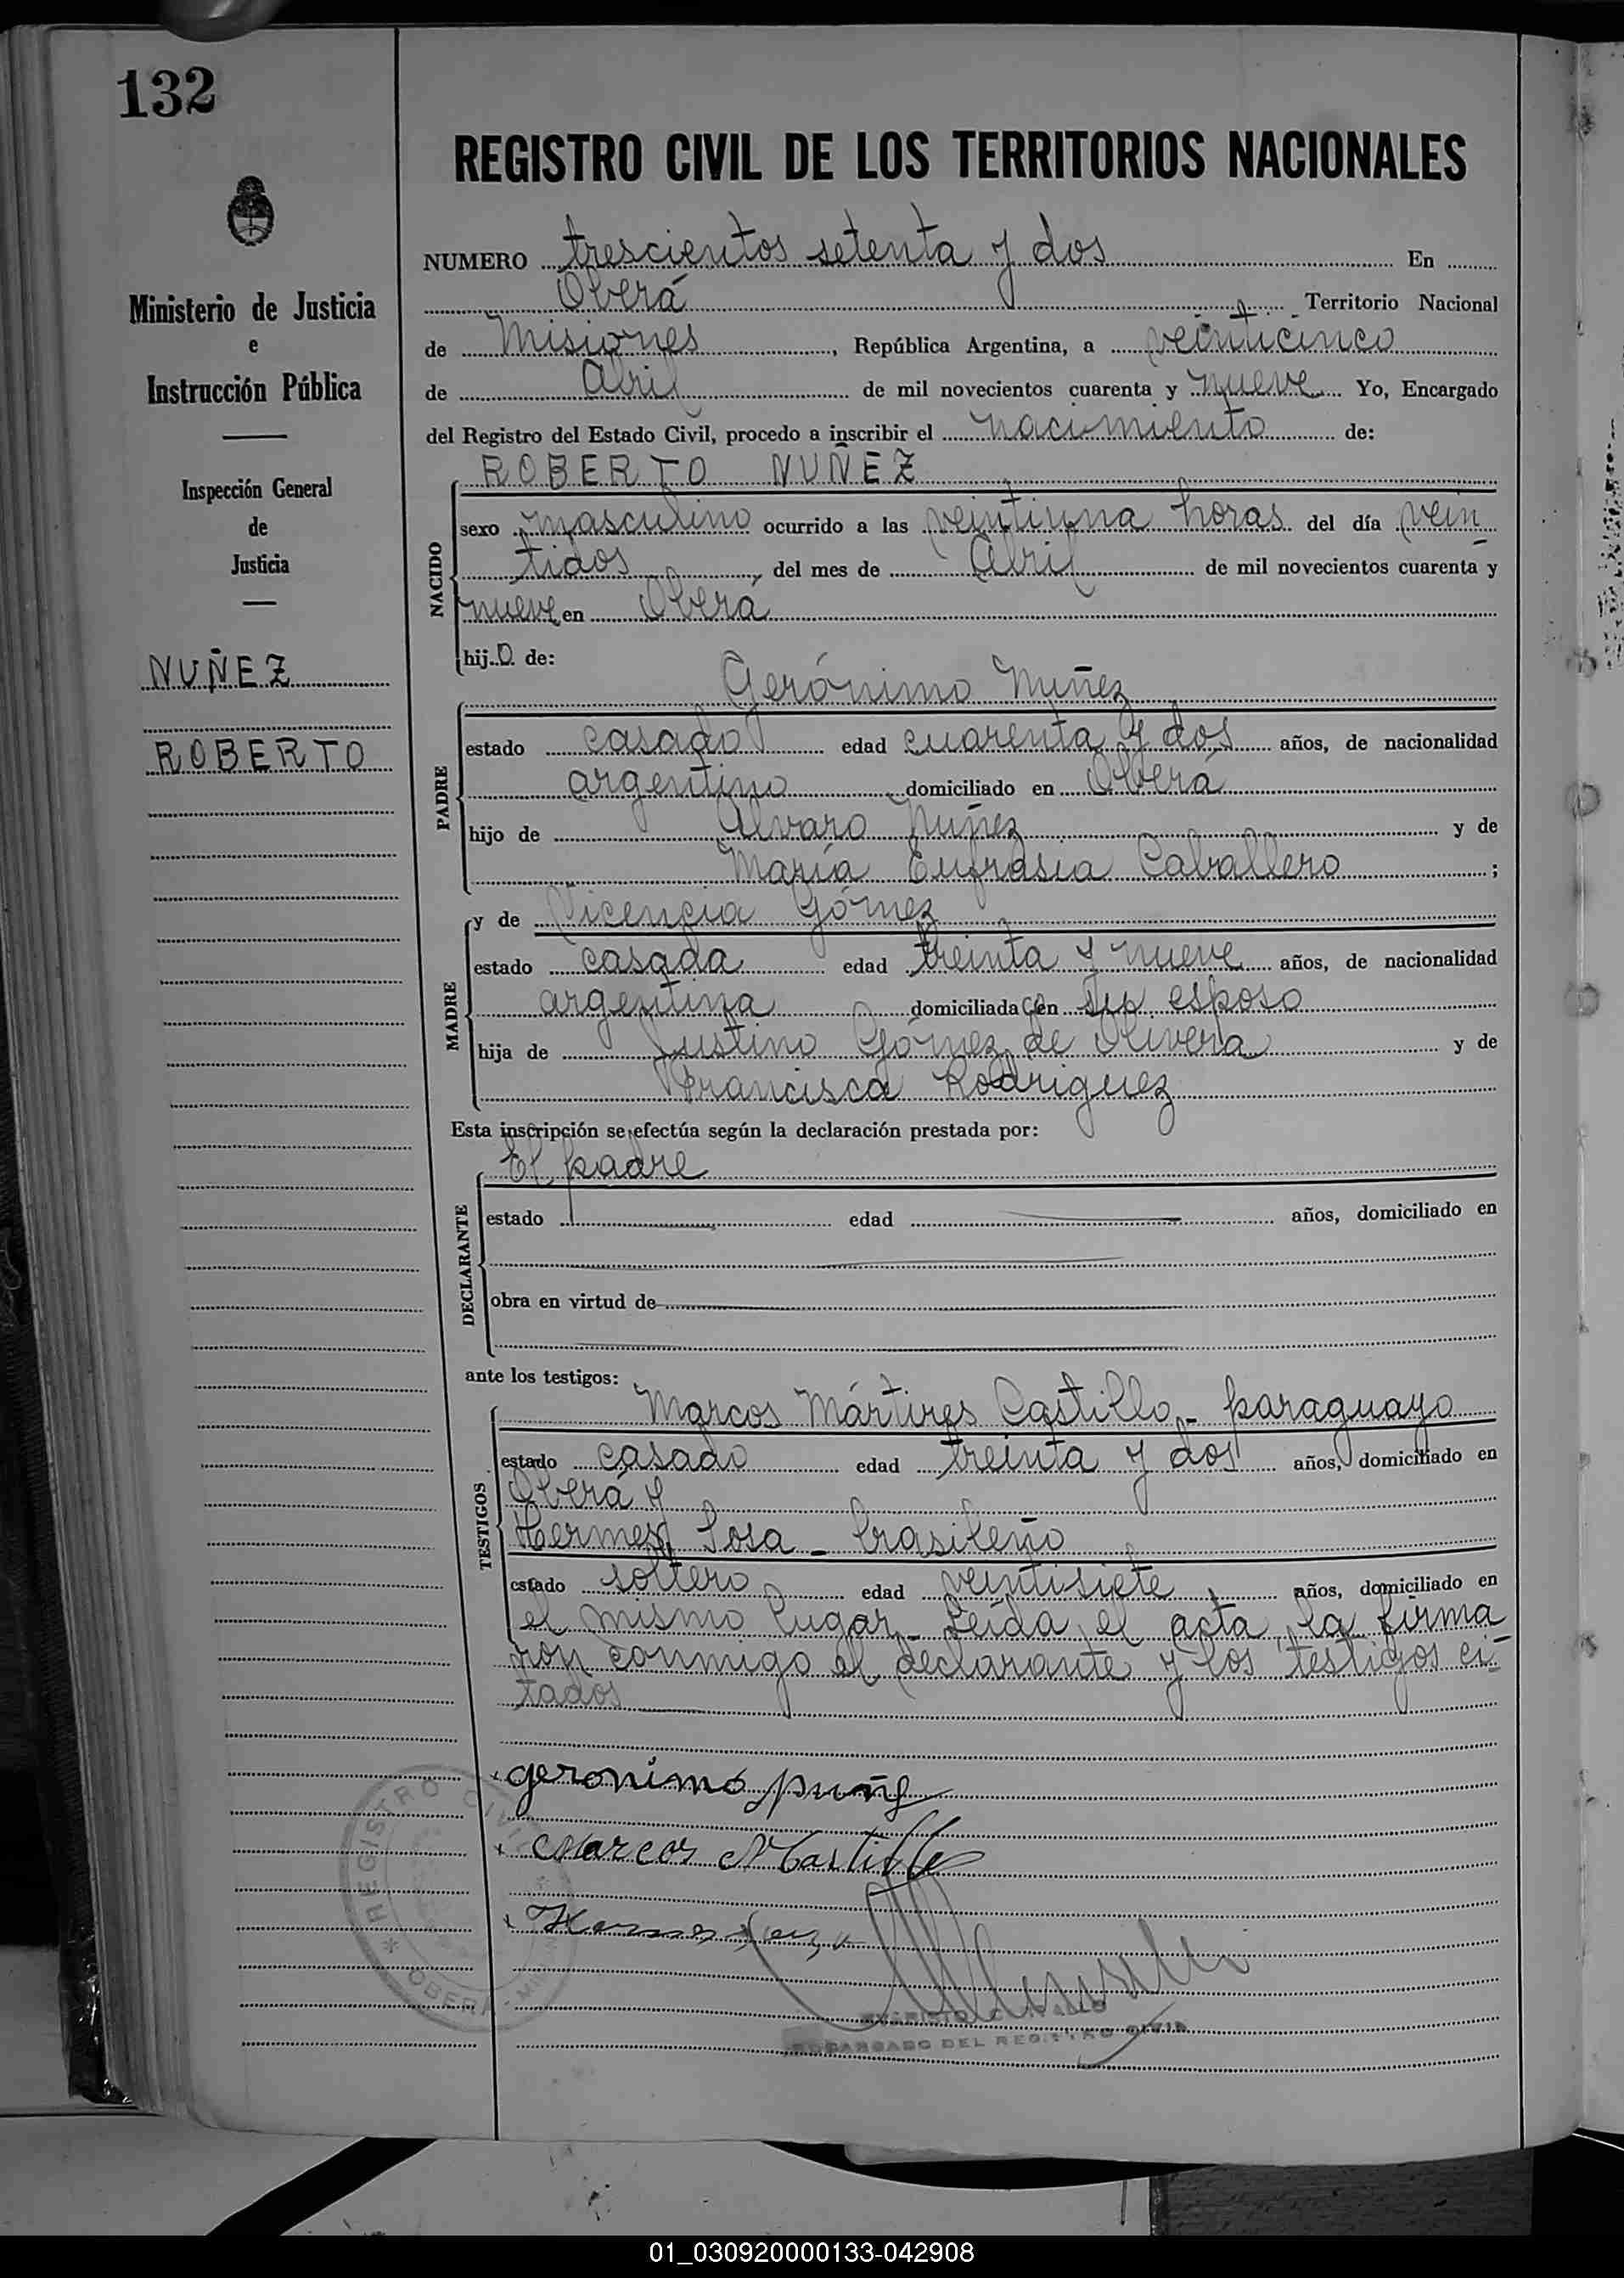 132
REGISTRO CIVIL DE LOS TERRITORIOS NACIONALES
Ministerio de Justicia
e
Instrucción Pública
Inspección General
de
Justicia
NUÑEZ
ROBERTO
NUMERO trescientos setenta y dos En
Oberá Territorio Nacional
de Misiones, República Argentina, a veinticinco
de Abril de mil novecientos cuarenta y nueve Yo, Encargado
del Registro del Estado Civil, procedo a inscribir el nacimiento de:
ROBERTO NUÑEZ
NACIDO
sexo masculino ocurrido a las veintiuna horas del día vein
tidos, del mes de Abril de mil novecientos cuarenta y
nueve en Oberá
hijo de:
Gerónimo Nuñez
PADRE
estado casado edad cuarenta y dos años, de nacionalidad
argentino domiciliado en Oberá
hijo de Alvaro Nuñez y de
María Eufrasia Caballero ;
MADRE
y de Vicencia Gómez
estado casada edad treinta y nueve años, de nacionalidad
argentina domiciliada con su esposo
hija de Justino Gómez de Olivera y de
Francisca Rodriguez
Esta inscripción se efectúa según la declaración prestada por:
El padre
DECLARANTE
estado edad años, domiciliado en
obra en virtud de
ante los testigos:
Marcos Mártires Castillo - paraguayo
TESTIGOS
estado casado edad treinta y dos años, domiciliado en
Oberá y
Hermes Sosa - brasileño
estado soltero edad veintisiete años, domiciliado en
el mismo lugar - Leída el acta, la firma
ron conmigo el declarante y los testigos ci-
tados
geronimo nuñez
Marcos M Castillo
REGISTRO CIVIL
OBERÁ
ENCARGADO DEL REGISTRO CIVIL
01_030920000133-042908